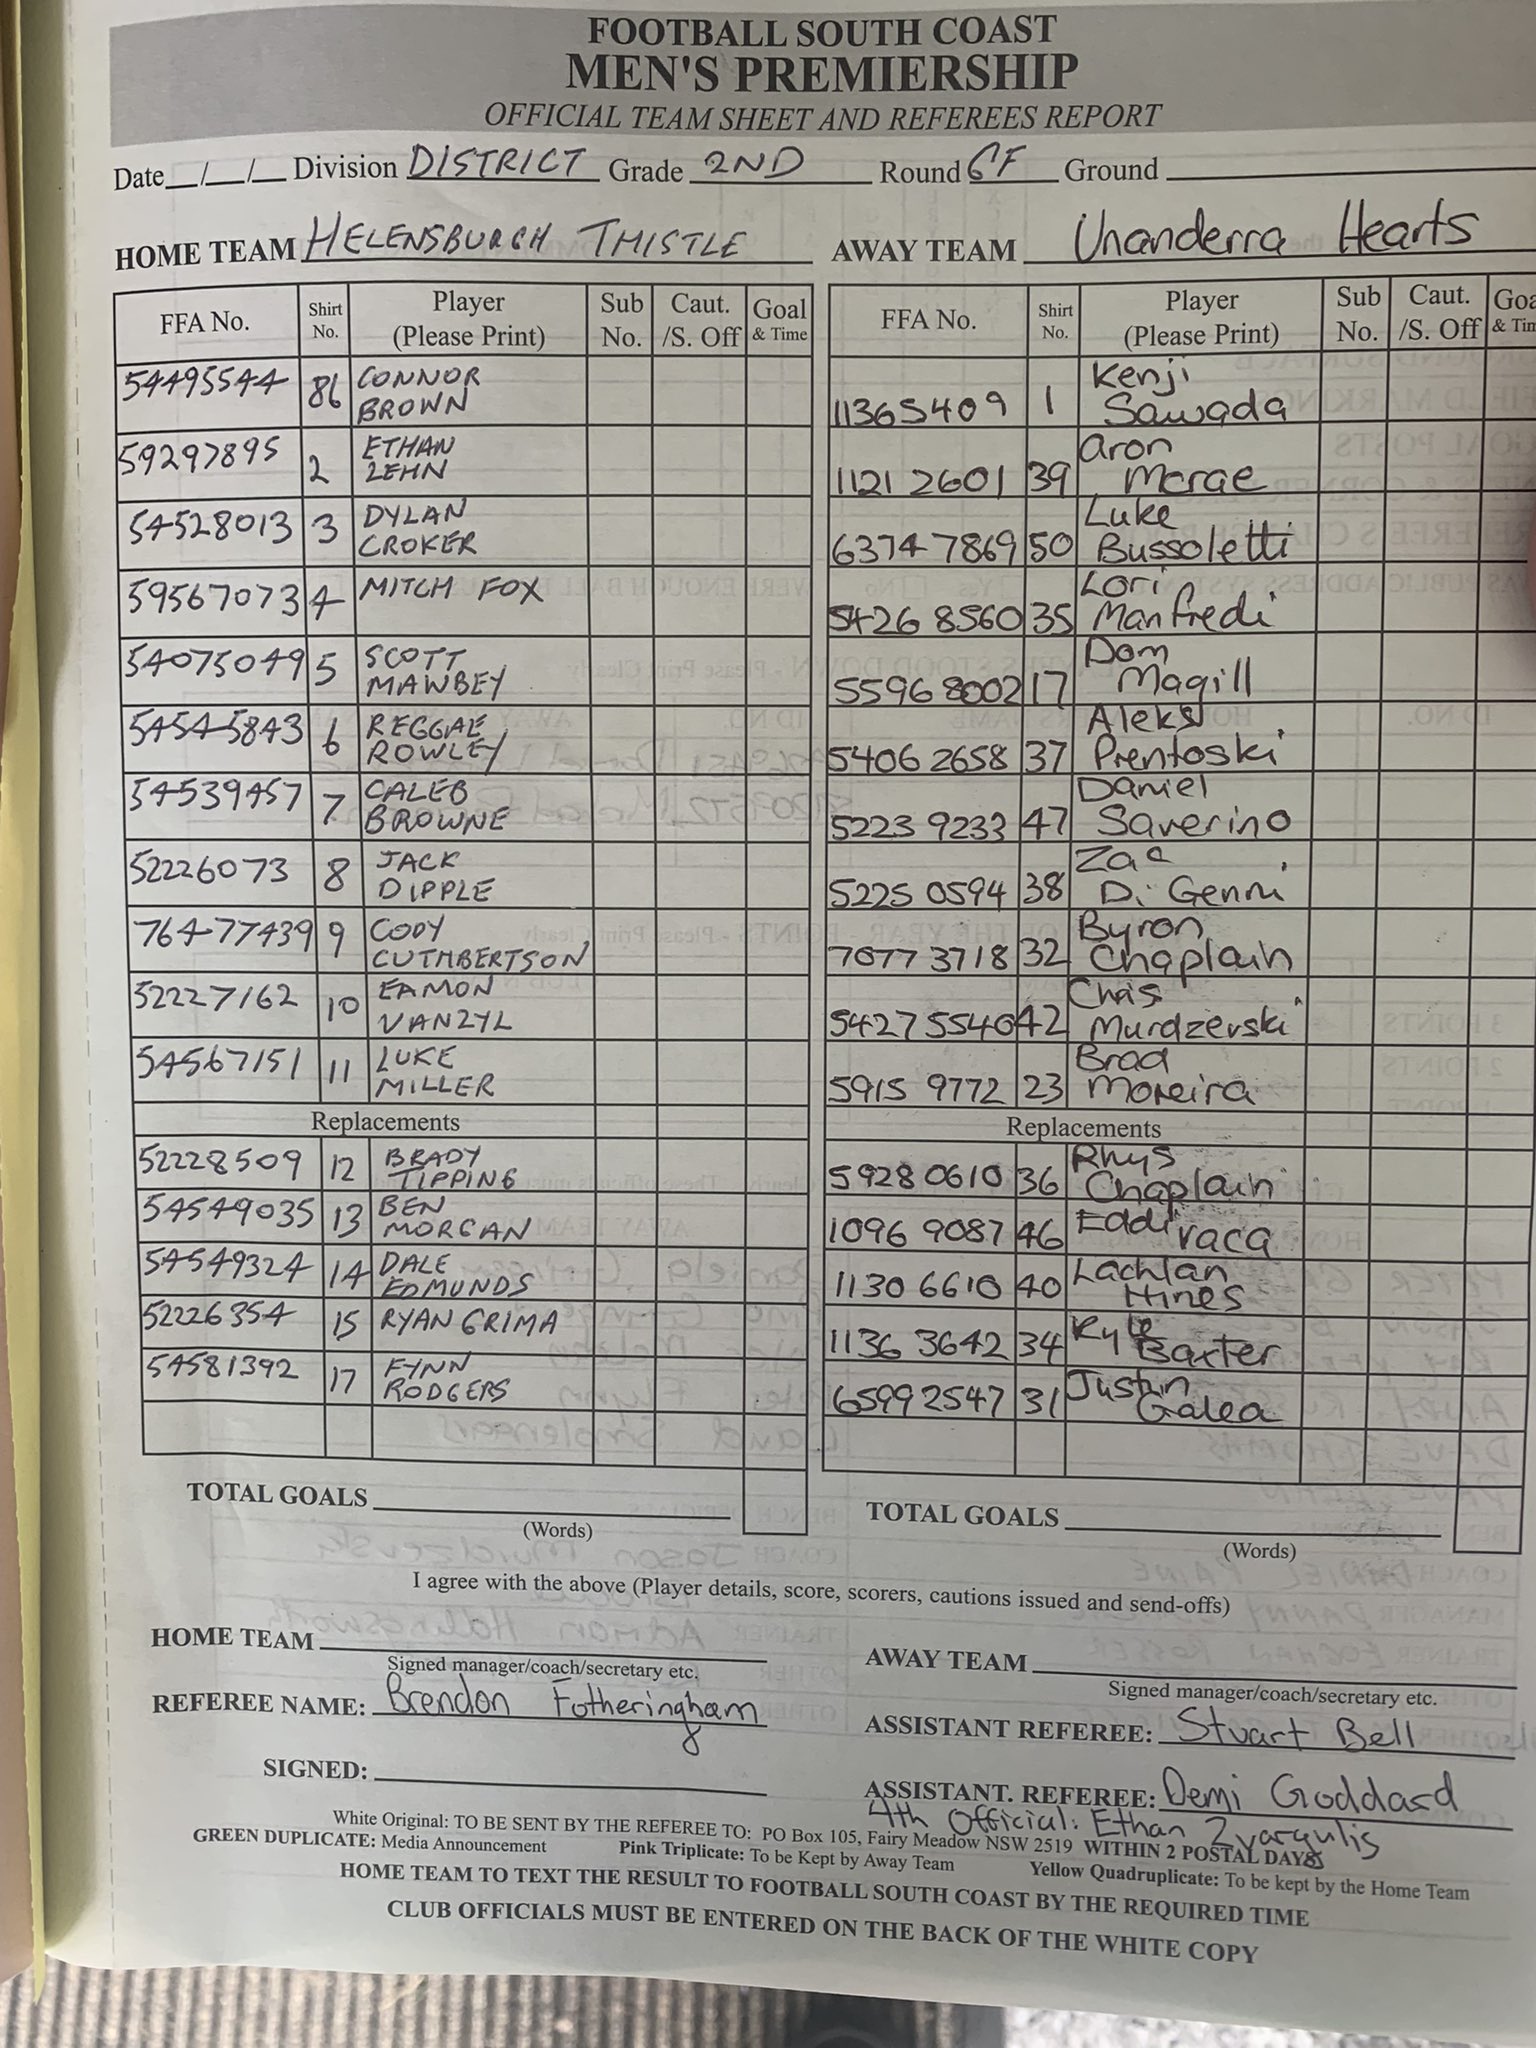 FOOTBALL SOUTH COAST
MEN'S PREMIERSHIP
OFFICIAL TEAM SHEET AND REFEREES REPORT
Date__/__/__ Division DISTRICT Grade 2ND Round GF Ground
HOME TEAM HELENSBURGH THISTLE
FFA No. Shirt No. Player (Please Print) Sub No. Caut. /S. Off Goal & Time
54495544 86 CONNOR BROWN
59297895 2 ETHAN LEHN
54528013 3 DYLAN CROKER
59567073 4 MITCH FOX
54075049 5 SCOTT MAWBEY
54545843 6 REGGAE ROWLEY
54539457 7 CALEB BROWNE
52226073 8 JACK DIPPLE
76477439 9 CODY CUTHBERTSON
52227162 10 EAMON VANZYL
54567151 11 LUKE MILLER
Replacements
52228509 12 BRADY TIPPING
54549035 13 BEN MORGAN
54549324 14 DALE EDMUNDS
52226354 15 RYAN GRIMA
54581392 17 FYNN RODGERS
TOTAL GOALS
(Words)
AWAY TEAM Unanderra Hearts
FFA No. Shirt No. Player (Please Print) Sub No. Caut. /S. Off Goa & Tim
11365409 1 Kenji Sawada
1121 2601 39 Aron Mcrae
6374 7869 50 Luke Bussoletti
5426 8560 35 Lori Manfredi
5596 8002 17 Dom Magill
5406 2658 37 Aleks Prentoski
5223 9233 47 Daniel Saverino
5225 0594 38 Zac Di Genni
7077 3718 32 Byron Chaplain
5427 5540 42 Chris Murdzevski
5915 9772 23 Brad Moreira
Replacements
5928 0610 36 Rhys Chaplain
1096 9087 46 Eddi vaca
1130 6610 40 Lachlan Hines
1136 3642 34 Kyle Baxter
6599 2547 31 Justin Galea
TOTAL GOALS
(Words)
I agree with the above (Player details, score, scorers, cautions issued and send-offs)
HOME TEAM
Signed manager/coach/secretary etc.
AWAY TEAM
Signed manager/coach/secretary etc.
REFEREE NAME: Brendon Fotheringham
ASSISTANT REFEREE: Stuart Bell
SIGNED:
ASSISTANT. REFEREE: Demi Goddard
4th Official: Ethan Zvargulis
White Original: TO BE SENT BY THE REFEREE TO: PO Box 105, Fairy Meadow NSW 2519 WITHIN 2 POSTAL DAYS
GREEN DUPLICATE: Media Announcement Pink Triplicate: To be Kept by Away Team Yellow Quadruplicate: To be kept by the Home Team
HOME TEAM TO TEXT THE RESULT TO FOOTBALL SOUTH COAST BY THE REQUIRED TIME
CLUB OFFICIALS MUST BE ENTERED ON THE BACK OF THE WHITE COPY